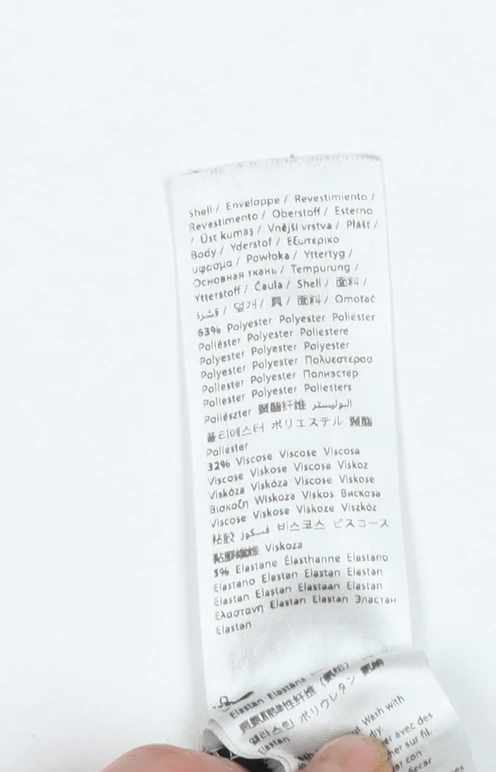 Shell / Enveloppe / Revestimiento /
Revestimento / Oberstoff / Esterno
/ Üst kumaş / Vnější vrstva / Plášť /
Body / Yderstof / Εξωτερικο
υφασμα / Powłoka / Yttertyg /
Основная ткань / Tempurung /
Ytterstoff / Čaula / Shell / 面料 /
قشرة / 덮개 / 貝 / 面料 / Omotač
63% Polyester Polyester Poliéster
Poliéster Polyester Poliestere
Polyester Polyester Polyester
Polyester Polyester Πολυεστερασ
Poliester Polyester Полиэстер
Poliester Polyester Poliesters
Poliészter 聚酯纤维 البوليستر
폴리에스터 ポリエステル 聚酯
Poliester
32% Viscose Viscose Viscosa
Viscose Viskose Viscosa Viskoz
Viskóza Viskóza Viscose Viskose
Βισκοζη Wiskoza Viskos Вискоза
Viscose Viskose Viskoze Viszkóz
粘胶 فسكوز 비스코스 ビスコース
Viskoza
5% Elastane Élasthanne Elastano
Elastano Elastan Elastan Elastan
Elastan Elastan Elastaan Elastan
Ελαστανη Elastan Elastan Эластан
Elastan
Elastan Elastāns
ポリウレタン
Elastan
Wash with
dry.
er avec des
her sur fil.
con
Secar